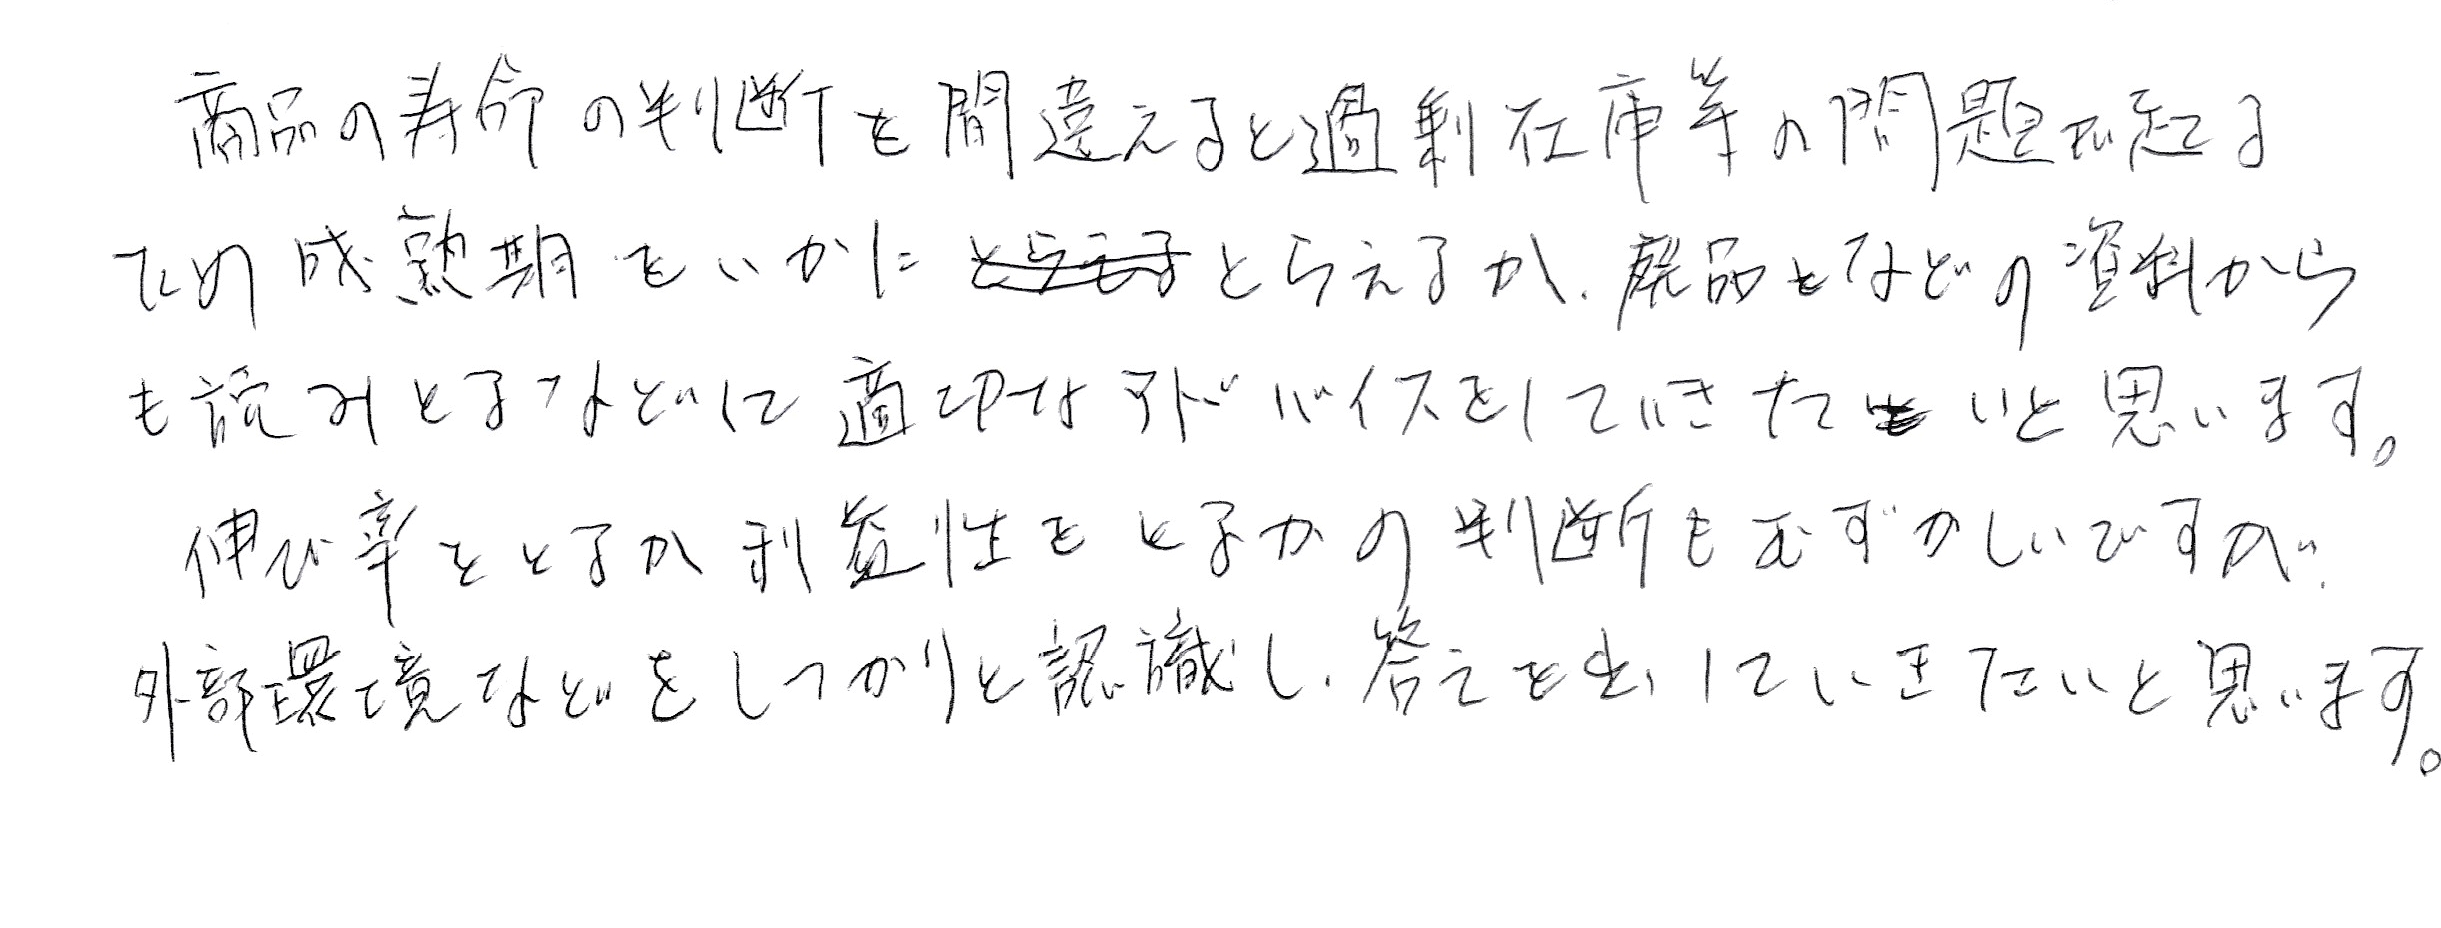 商品の寿命の判断を間違えると過剰在庫等の問題が起こる
ため成熟期をいかにとらえるか、廃品となどの資料から
も読みとるなどして適切なアドバイスをしていきたいと思います。
伸び率をとるか利益性をとるかの判断もむずかしいですが、
外部環境などをしっかりと認識し、答えを出していきたいと思います。